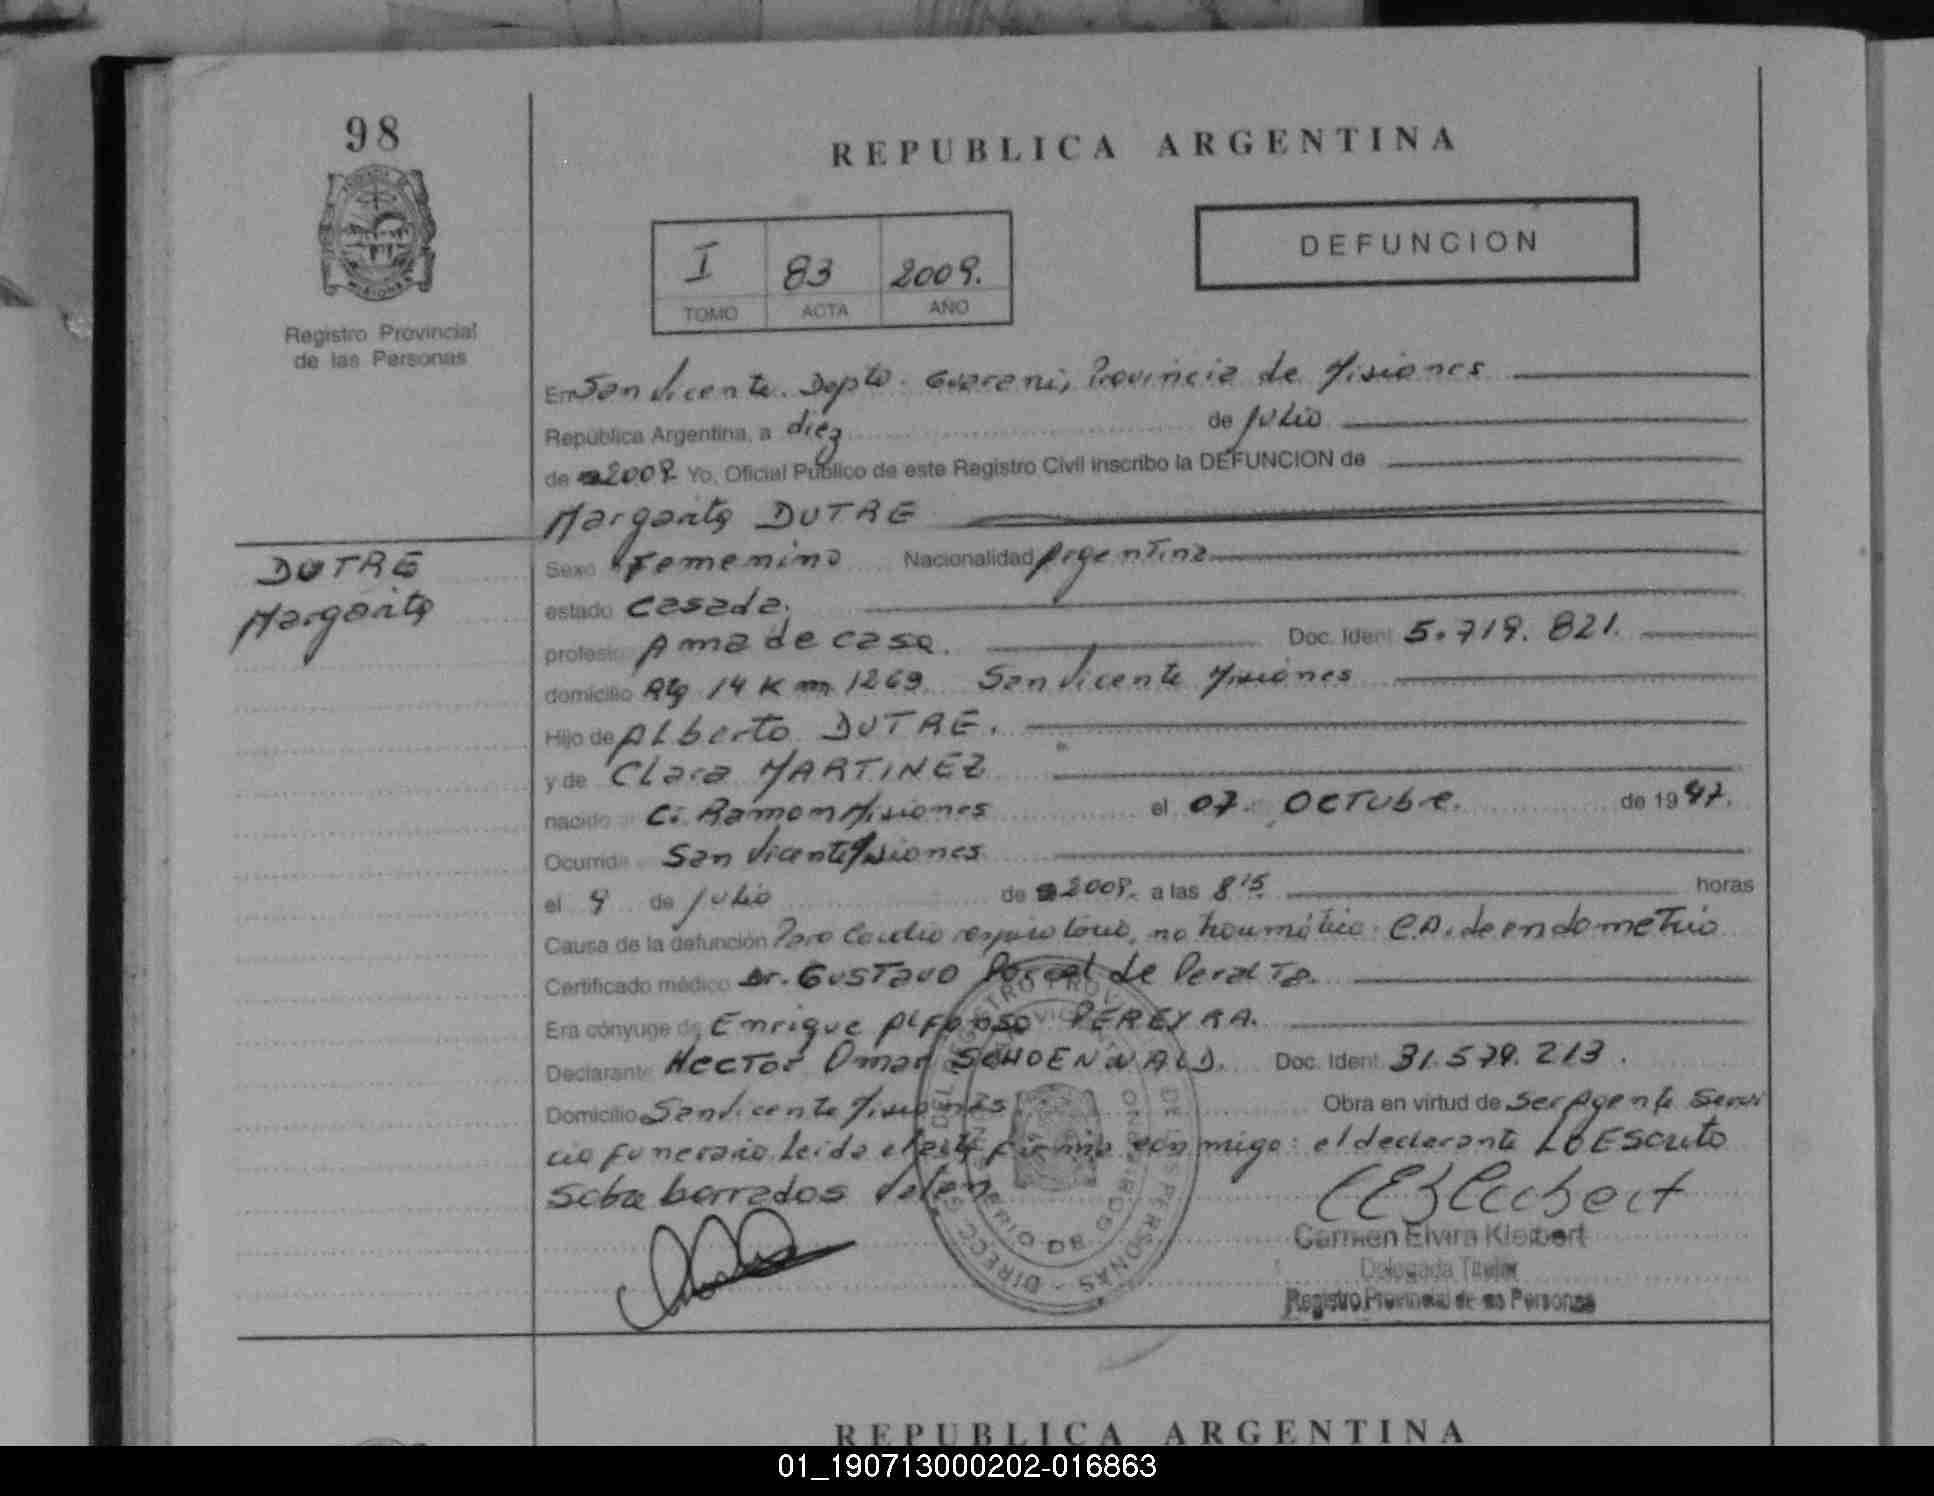 98
REPUBLICA ARGENTINA
PROVINCIA
MISIONES
Registro Provincial
de las Personas
I 83 2009.
TOMO ACTA AÑO
DEFUNCION
En San Vicente. Depto. Guarani, Provincia de Misiones
República Argentina, a diez de Julio
de 2009 Yo, Oficial Público de este Registro Civil inscribo la DEFUNCION de
Margarita DUTRE
DUTRE
Margarita
Sexo Femenino Nacionalidad Argentina
estado Casada.
profesión Ama de casa. Doc. Ident. 5.719.821.
domicilio Rta 14 Km 1269 San Vicente Misiones
Hijo de Alberto DUTRE.
y de Clara MARTINEZ
nacido C. Ramon Misiones el 07 Octubre. de 1947.
Ocurrida San Vicente Misiones
el 9 de Julio de 2009. a las 8'15 horas
Causa de la defunción Paro Cardio respiratorio, no traumático. C.A. de endometrio
Certificado médico Dr. Gustavo de Peralta.
Era cónyuge de Enrique Alfonso PEREYRA.
Declarante Hector Omar SCHOENWALD. Doc. Ident. 31.579.213.
Domicilio San Vicente Misiones Obra en virtud de ser Agente Servi
cio funerario. Leida el acta firma conmigo: el declarante Lo Escrito
Sobre borrados Valen
Carmen Elvira Kleibert
Delegada Titular
Registro Provincial de las Personas
REPUBLICA ARGENTINA
01_190713000202-016863